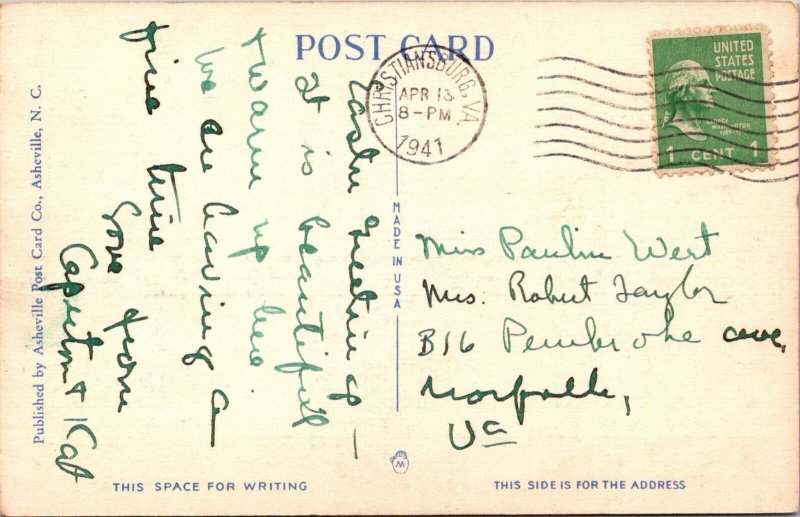 POST CARD
CHRISTIANSBURG, VA.
APR 13
8-PM
1941
UNITED
STATES
POSTAGE
1 CENT 1
Easter Greetings –
It is beautiful
+ warm up here
We are having a
fine time
Love from
+ Kat
Miss Pauline West
Mrs. Robert Taylor
816 Pembroke ave,
Norfolk,
Va
MADE IN USA
W
Published by Asheville Post Card Co., Asheville, N. C.
THIS SPACE FOR WRITING
THIS SIDE IS FOR THE ADDRESS